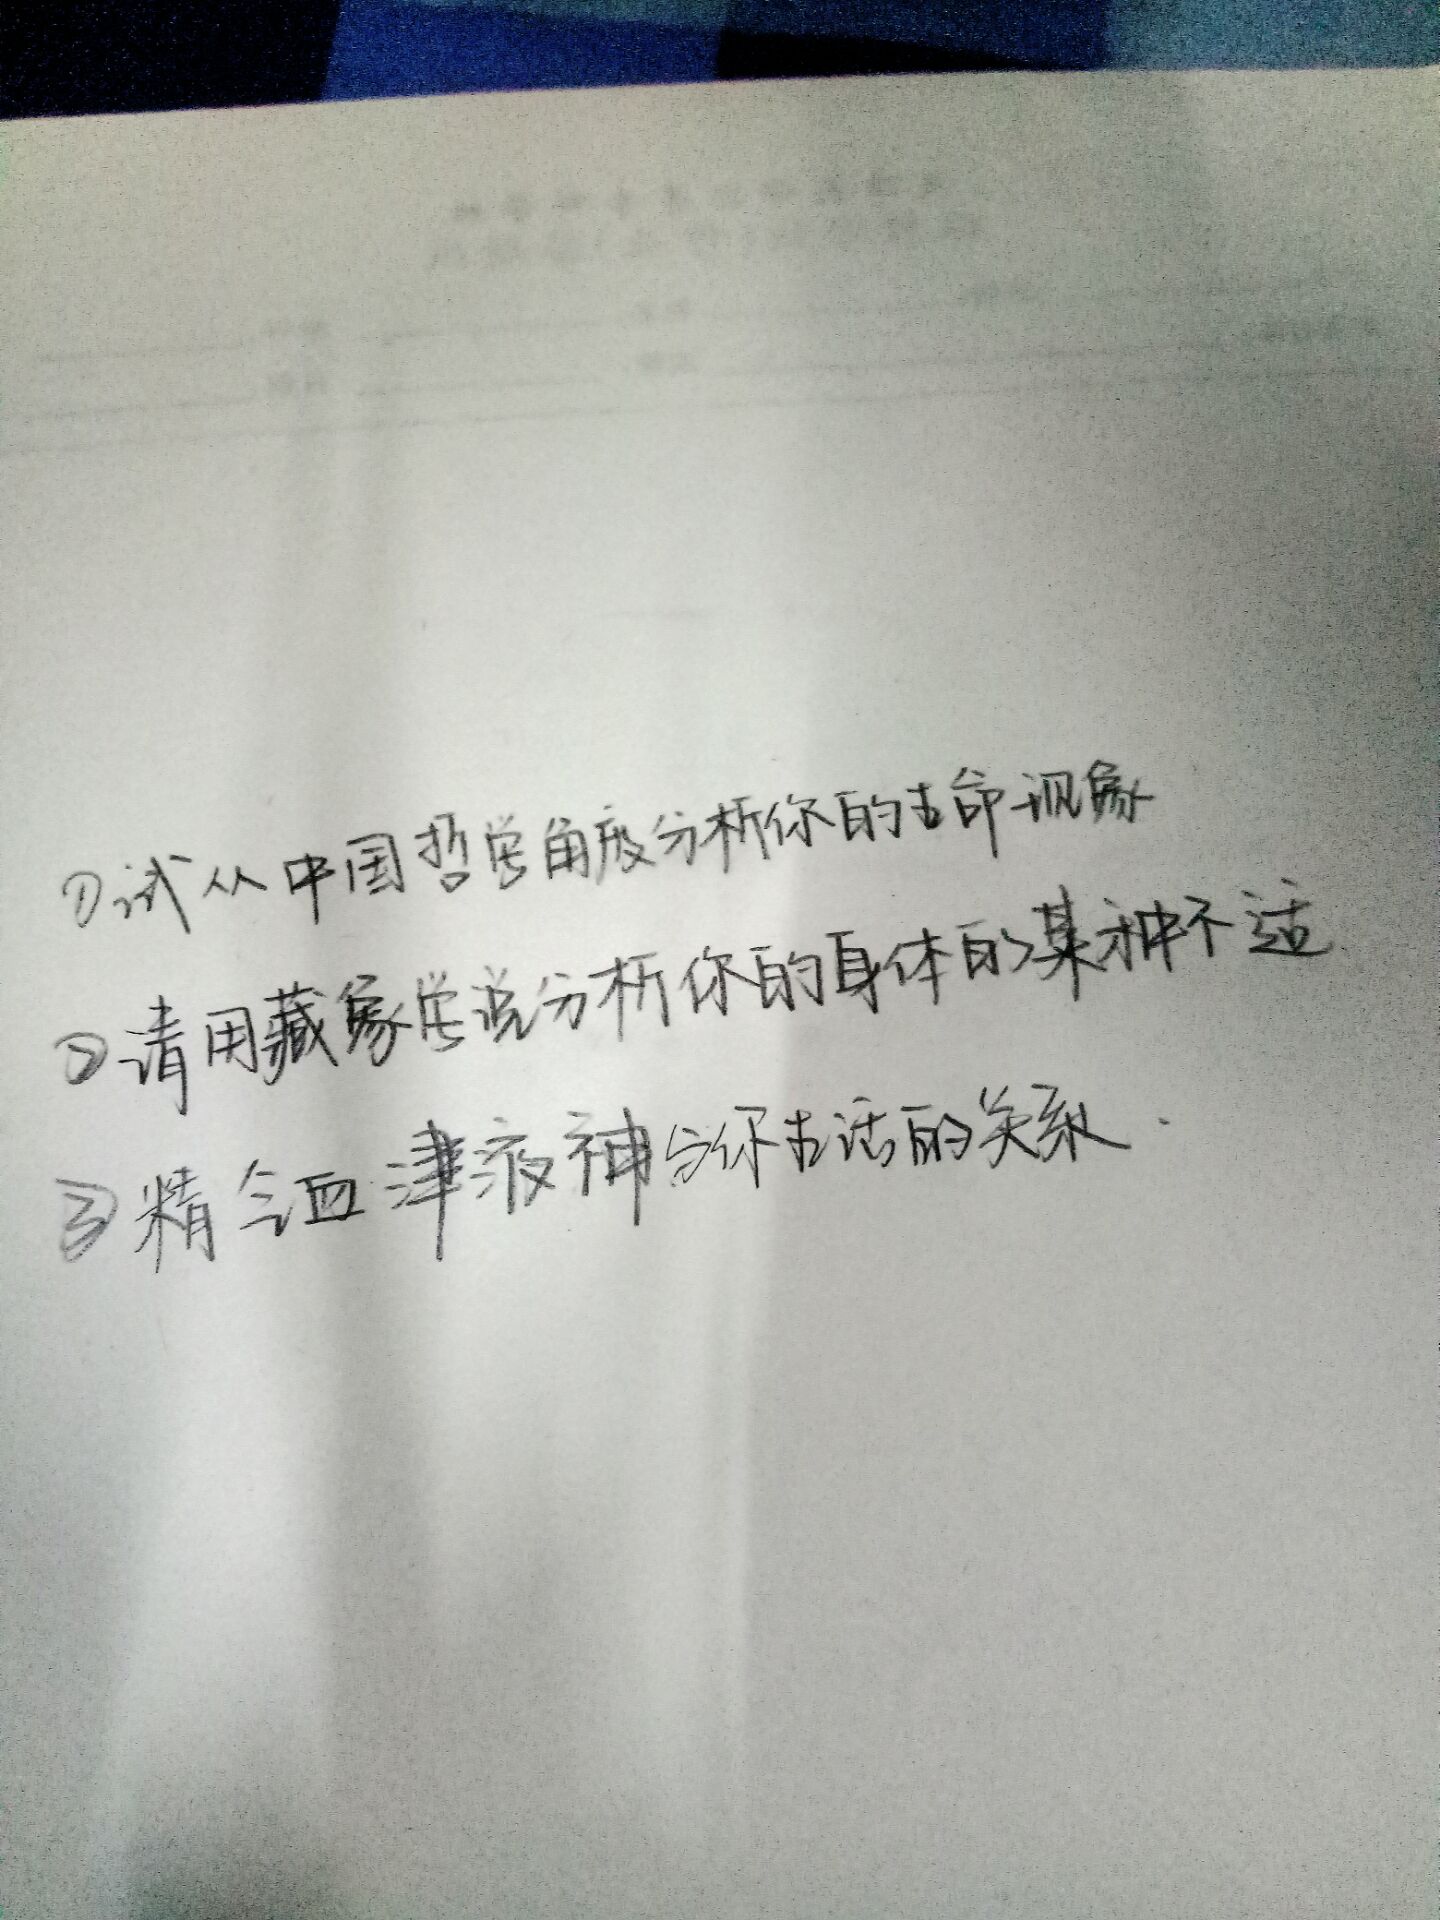 ①试从中国哲学角度分析你的生命现象
②请用藏象学说分析你的身体的某种不适
③精气血津液神与你生活的关系.